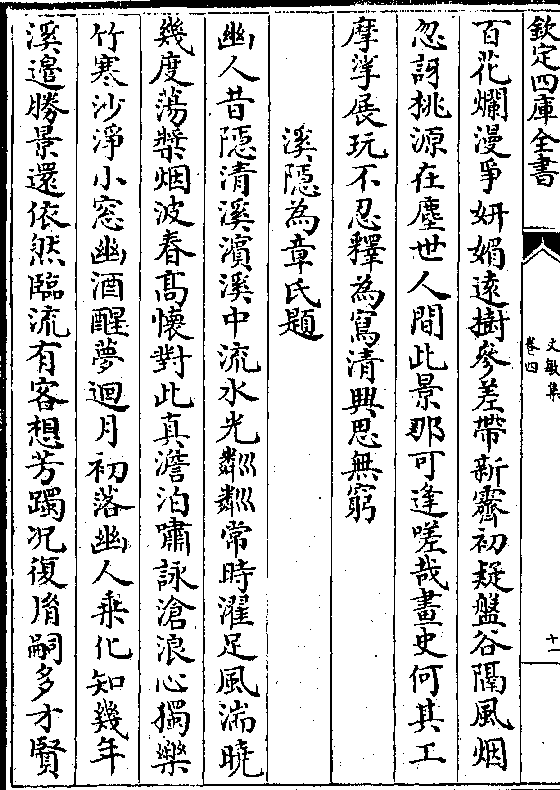 欽定四庫全書
文敏集
卷四
十一
百花爛漫爭妍媚遠樹參差帶新霽初疑盤谷隔風烟
忽訝桃源在塵世人間此景那可逢嗟哉畫史何其工
摩挲展玩不忍釋為寫清興思無窮
溪隱為章氏題
幽人昔隱清溪濱溪中流水光粼粼常時濯足風湍曉
幾度蕩槳烟波春高懷對此真澹泊嘯詠滄浪心獨樂
竹寒沙淨小窓幽酒醒夢迴月初落幽人乘化知幾年
溪邉勝景還依然臨流有客想芳躅况復胤嗣多才賢